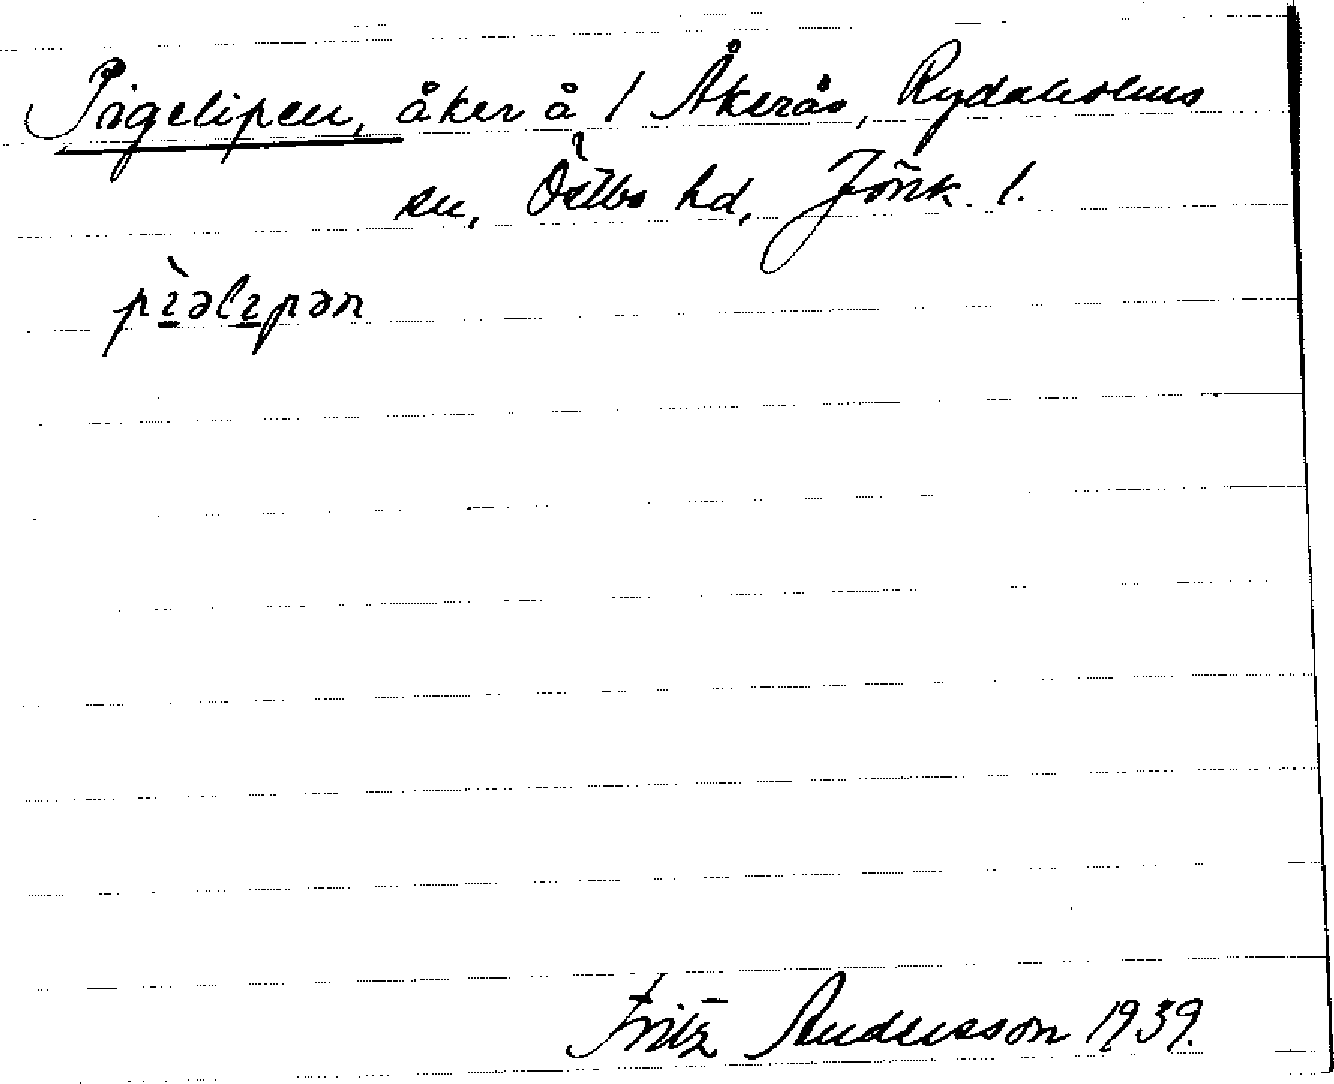 Pigelipen, åker å 1 Åkerås, Rydaholms
sn, Östbo hd, Jönk. l.
pìəlıpən
Fritz Andersson 1939.